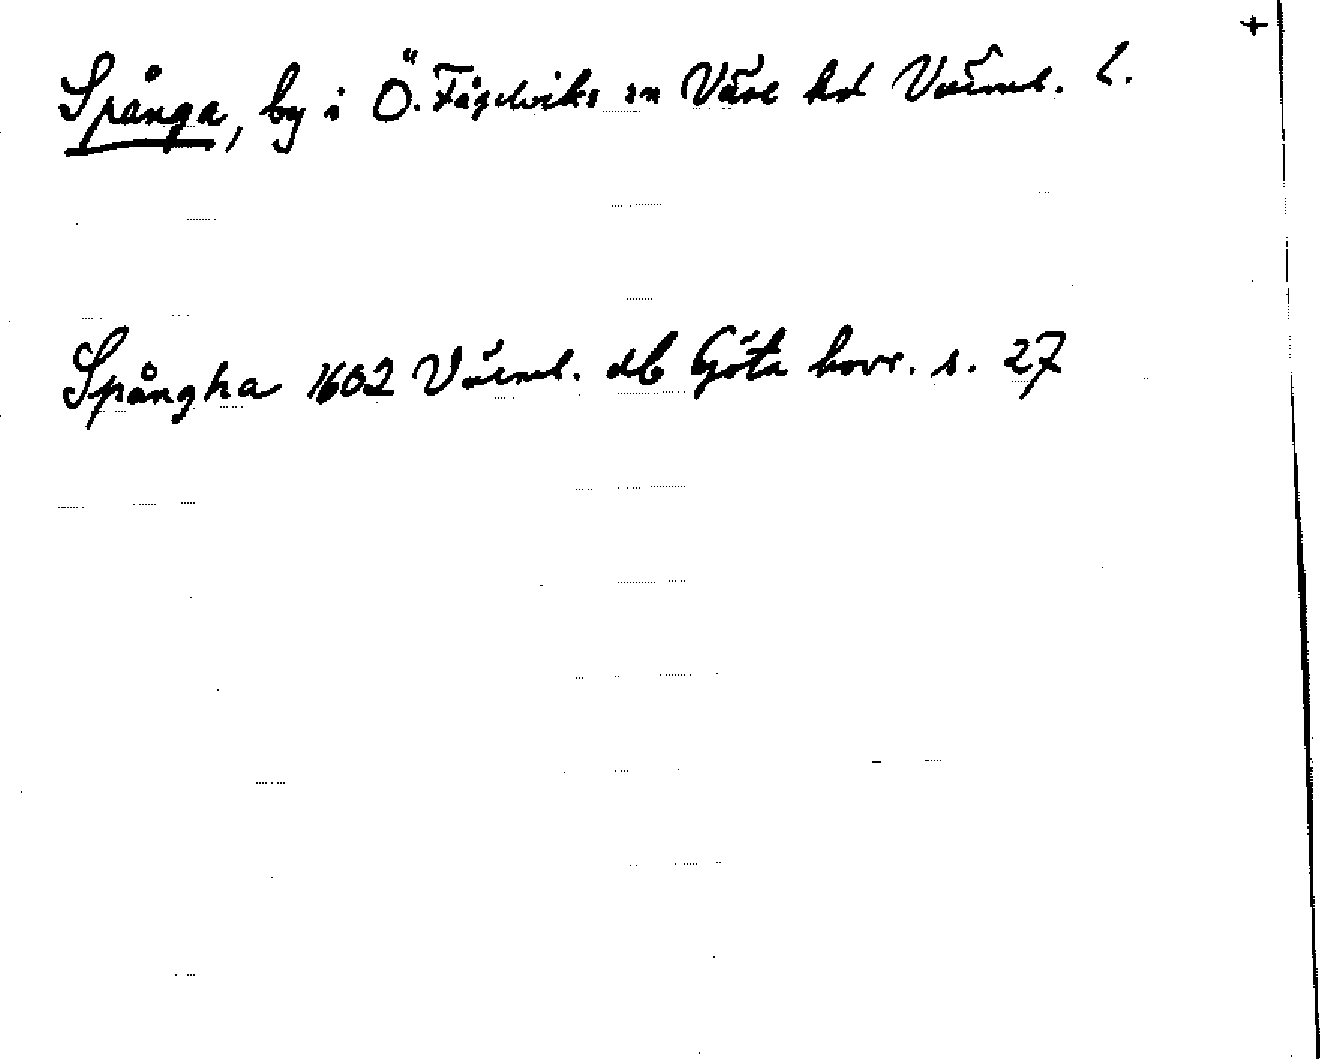 +
Spånga, by i Ö. Fågelviks sn Väse hd Värml. l.
Spångha 1602 Värml. db Göta hovr. s. 27